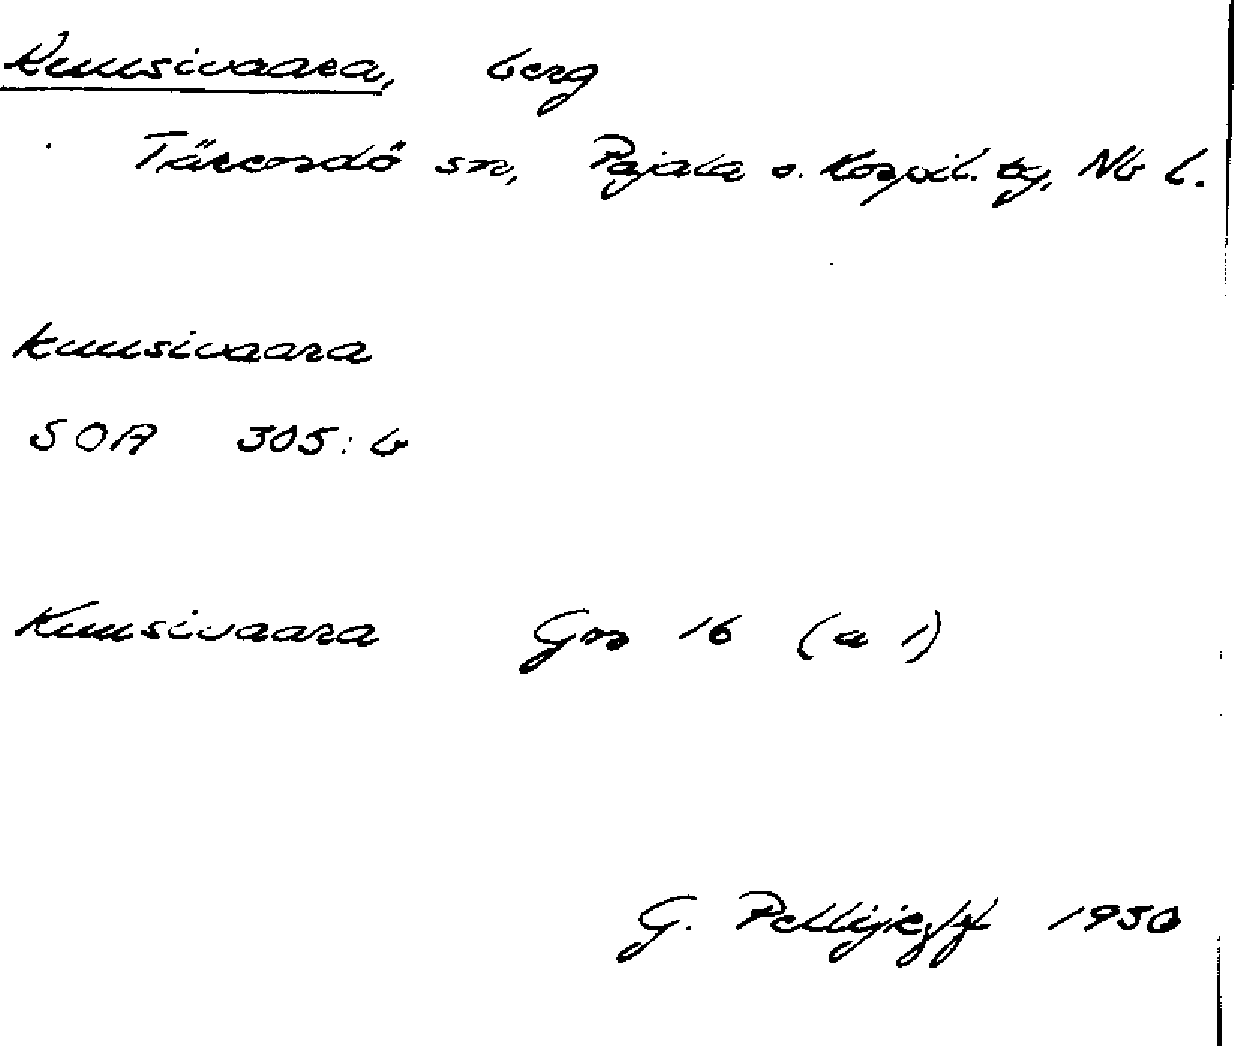 Kuusivaara, berg
Tärendö sn, Pajala o. Korpil. tg, Nb l.
kuusivaara
SOA 305: b
Kuusivaara Gns 16 (a 1)
G. Pellijeff 1950